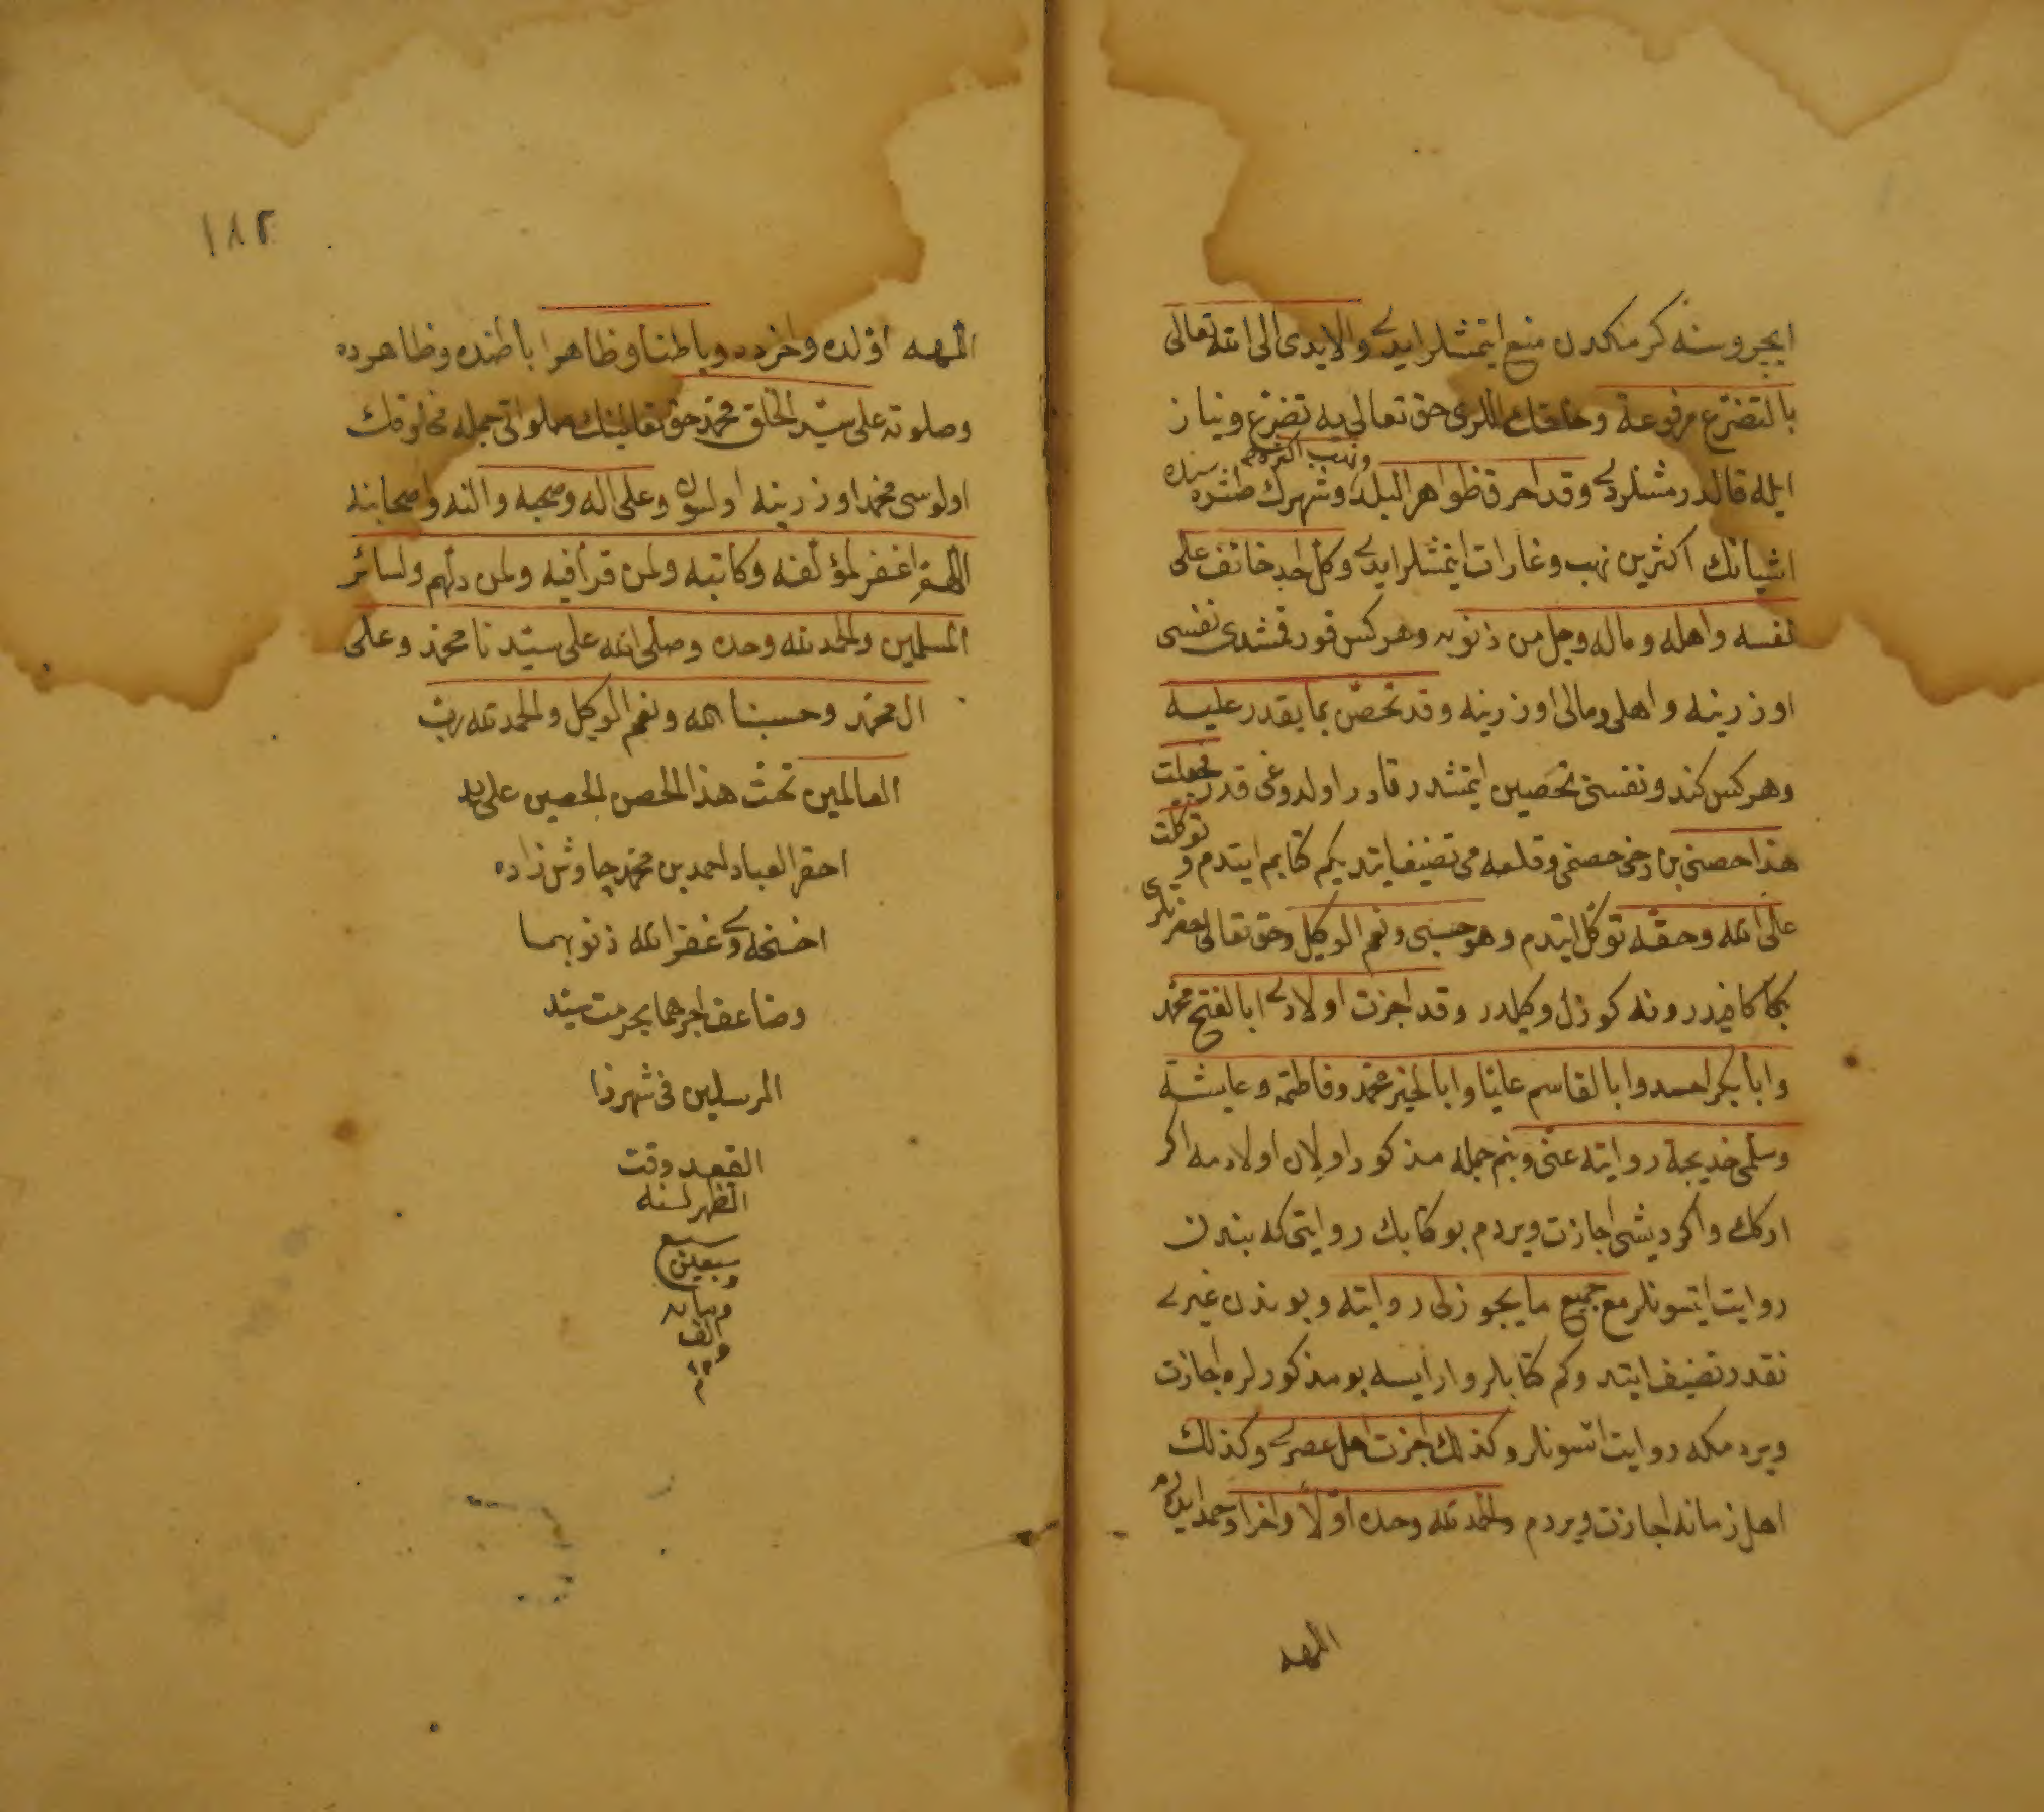 ايچروسنه كرمكدن منع ايتمشلرايدى والايدى الى الله تعالى
بالتضرع مرفوعة وخلقك اللرى حق تعالى يه تضرع ونياز
ايله قالدرمشلردى وقد احرق ظواهر البلد ونهب اكثره وشهرك طشره سنده
اشيانك اكثرين نهب وغارات ايتمشلرايدى وكل احد خائف على
نفسه واهله وماله وجل من ذنوبه وهركس قورقمشدى نفسى
اوزرينه واهلى ومالى اوزرينه وقد تحصّن بما يقدر عليه
وهركس كندونفسنى تحصين ايتمشدر قادر اولدوغى قدر فجعلت
هذا حصنى بن دخى حصنمى وقلعه مى تصنيف ايتديكم كتابم ايتدم وتوكلت
على الله وحقه توكل ايتدم وهو حسبى ونعم الوكيل وحق تعالى حضرتلرى
بكا كافيدر ونه كوزل وكيلدر وقد اجزت اولادى ابا الفتح محمد
وابا بكر احمد وابا القاسم عليا وابا الخير محمد وفاطمة وعايشة
وسلمى خديجة روايته عنى وبنم جمله مذكور اولان اولادمه اكر
اركك واكر ديشى اجازت ويردم بو كتابك روايتى كه بندن
روايت ايتسونلر مع جميع ما يجوز لى روايته وبوندن غيرى
نقدر تصنيف ايتدم وكم كتابلر وارايسه بو مذكورلره اجازت
ويردمكه روايت اتسونلر وكذلك اجزت اهل عصرى وكذلك
اهل زمانه اجازت ويردم والحمد لله وحده اوّلا واخرا وحمد ايدرم
اللهه
١٨٢
اللهه اوّلده واخرده وباطنا وظاهرا باطنده وظاهرده
وصلوته على سيّد الخلق محمد حق تعالينك صلواتى جمله مخلوقك
اولوسى محمد اوزرينه اولسون وعلى اله وصحبه والنه واصحابنه
اللهم اغفر لمؤلفه وكاتبه ولمن قرأ فيه ولمن دلّهم ولسائر
المسلمين والحمد لله وحده وصلى الله على سيّدنا محمد وعلى
ال محمد وحسبنا الله ونعم الوكيل والحمد لله ربّ
العالمين تمّت هذا الحصن الحصين على يد
احقر العباد احمد بن محمد چاوش زاده
اخسخوى غفر الله ذنوبهما
وضاعف اجرهما بحرمت سيّد
المرسلين فى شهر ذا
القعده وقت
الظهر لسنه
سبع
وسبعين
ومايه
والف